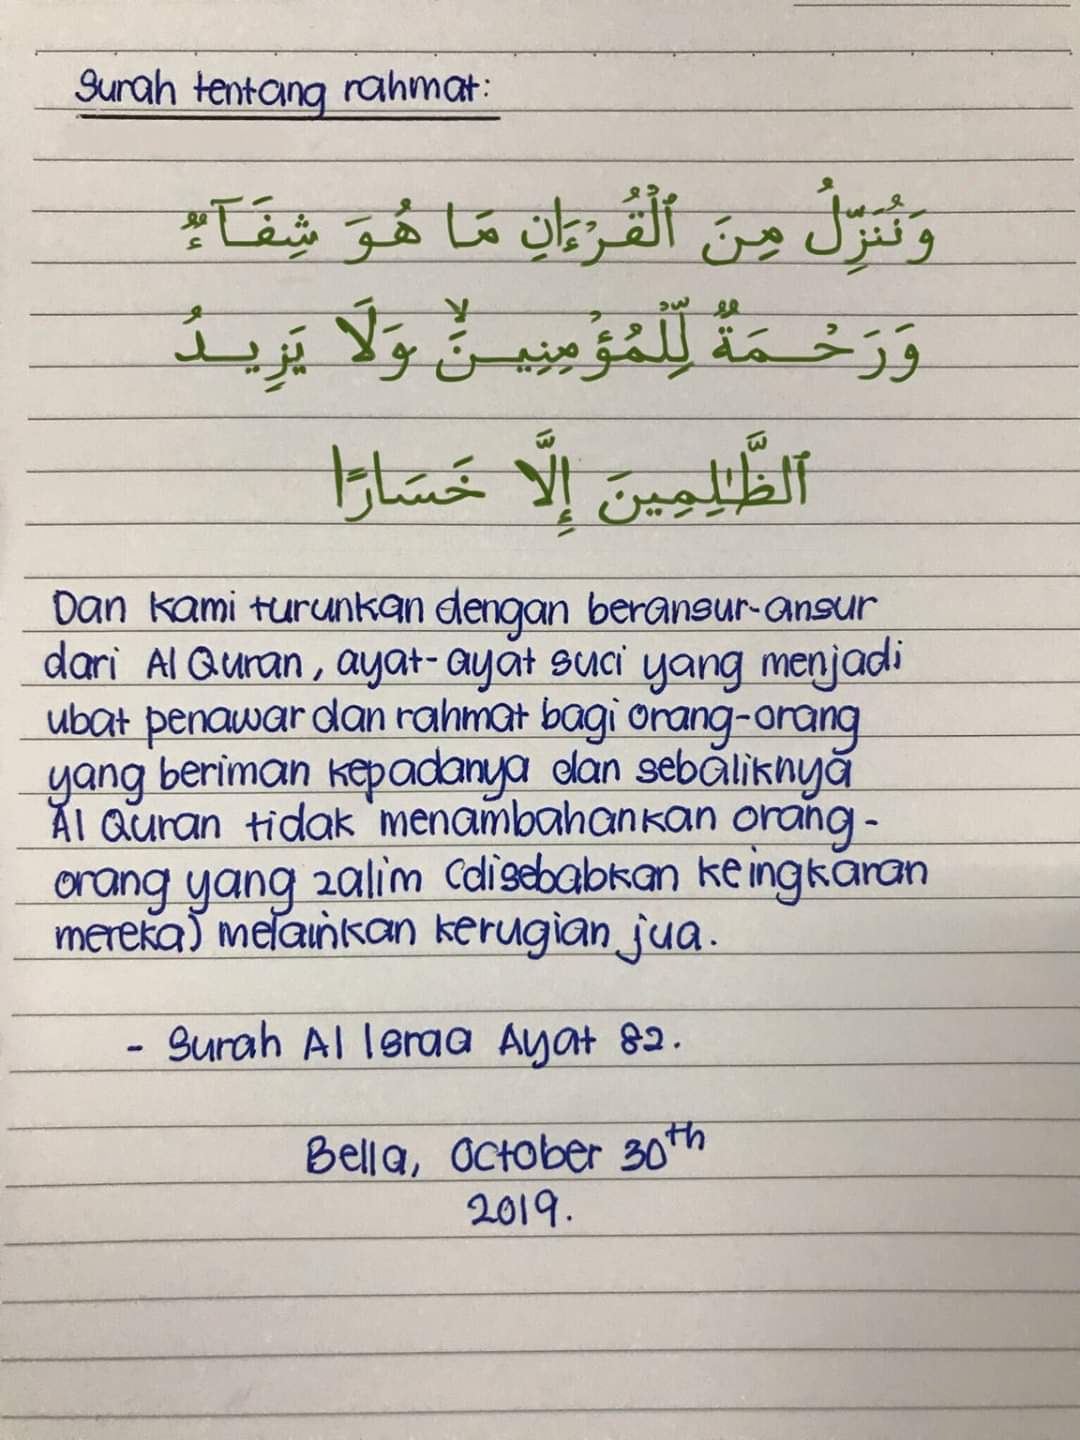 Surah tentang rahmat:
وَنُنَزِّلُ مِنَ ٱلْقُرْءَانِ مَا هُوَ شِفَآءٌ
وَرَحْمَةٌ لِّلْمُؤْمِنِينَ ۙ وَلَا يَزِيدُ
ٱلظَّـٰلِمِينَ إِلَّا خَسَارًا
Dan kami turunkan dengan beransur-ansur
dari Al Quran, ayat-ayat suci yang menjadi
ubat penawar dan rahmat bagi orang-orang
yang beriman kepadanya dan sebaliknya
Al Quran tidak menambahankan orang-
orang yang zalim (disebabkan keingkaran
mereka) melainkan kerugian jua.
- Surah Al Israa Ayat 82.
Bella, October 30th
2019.